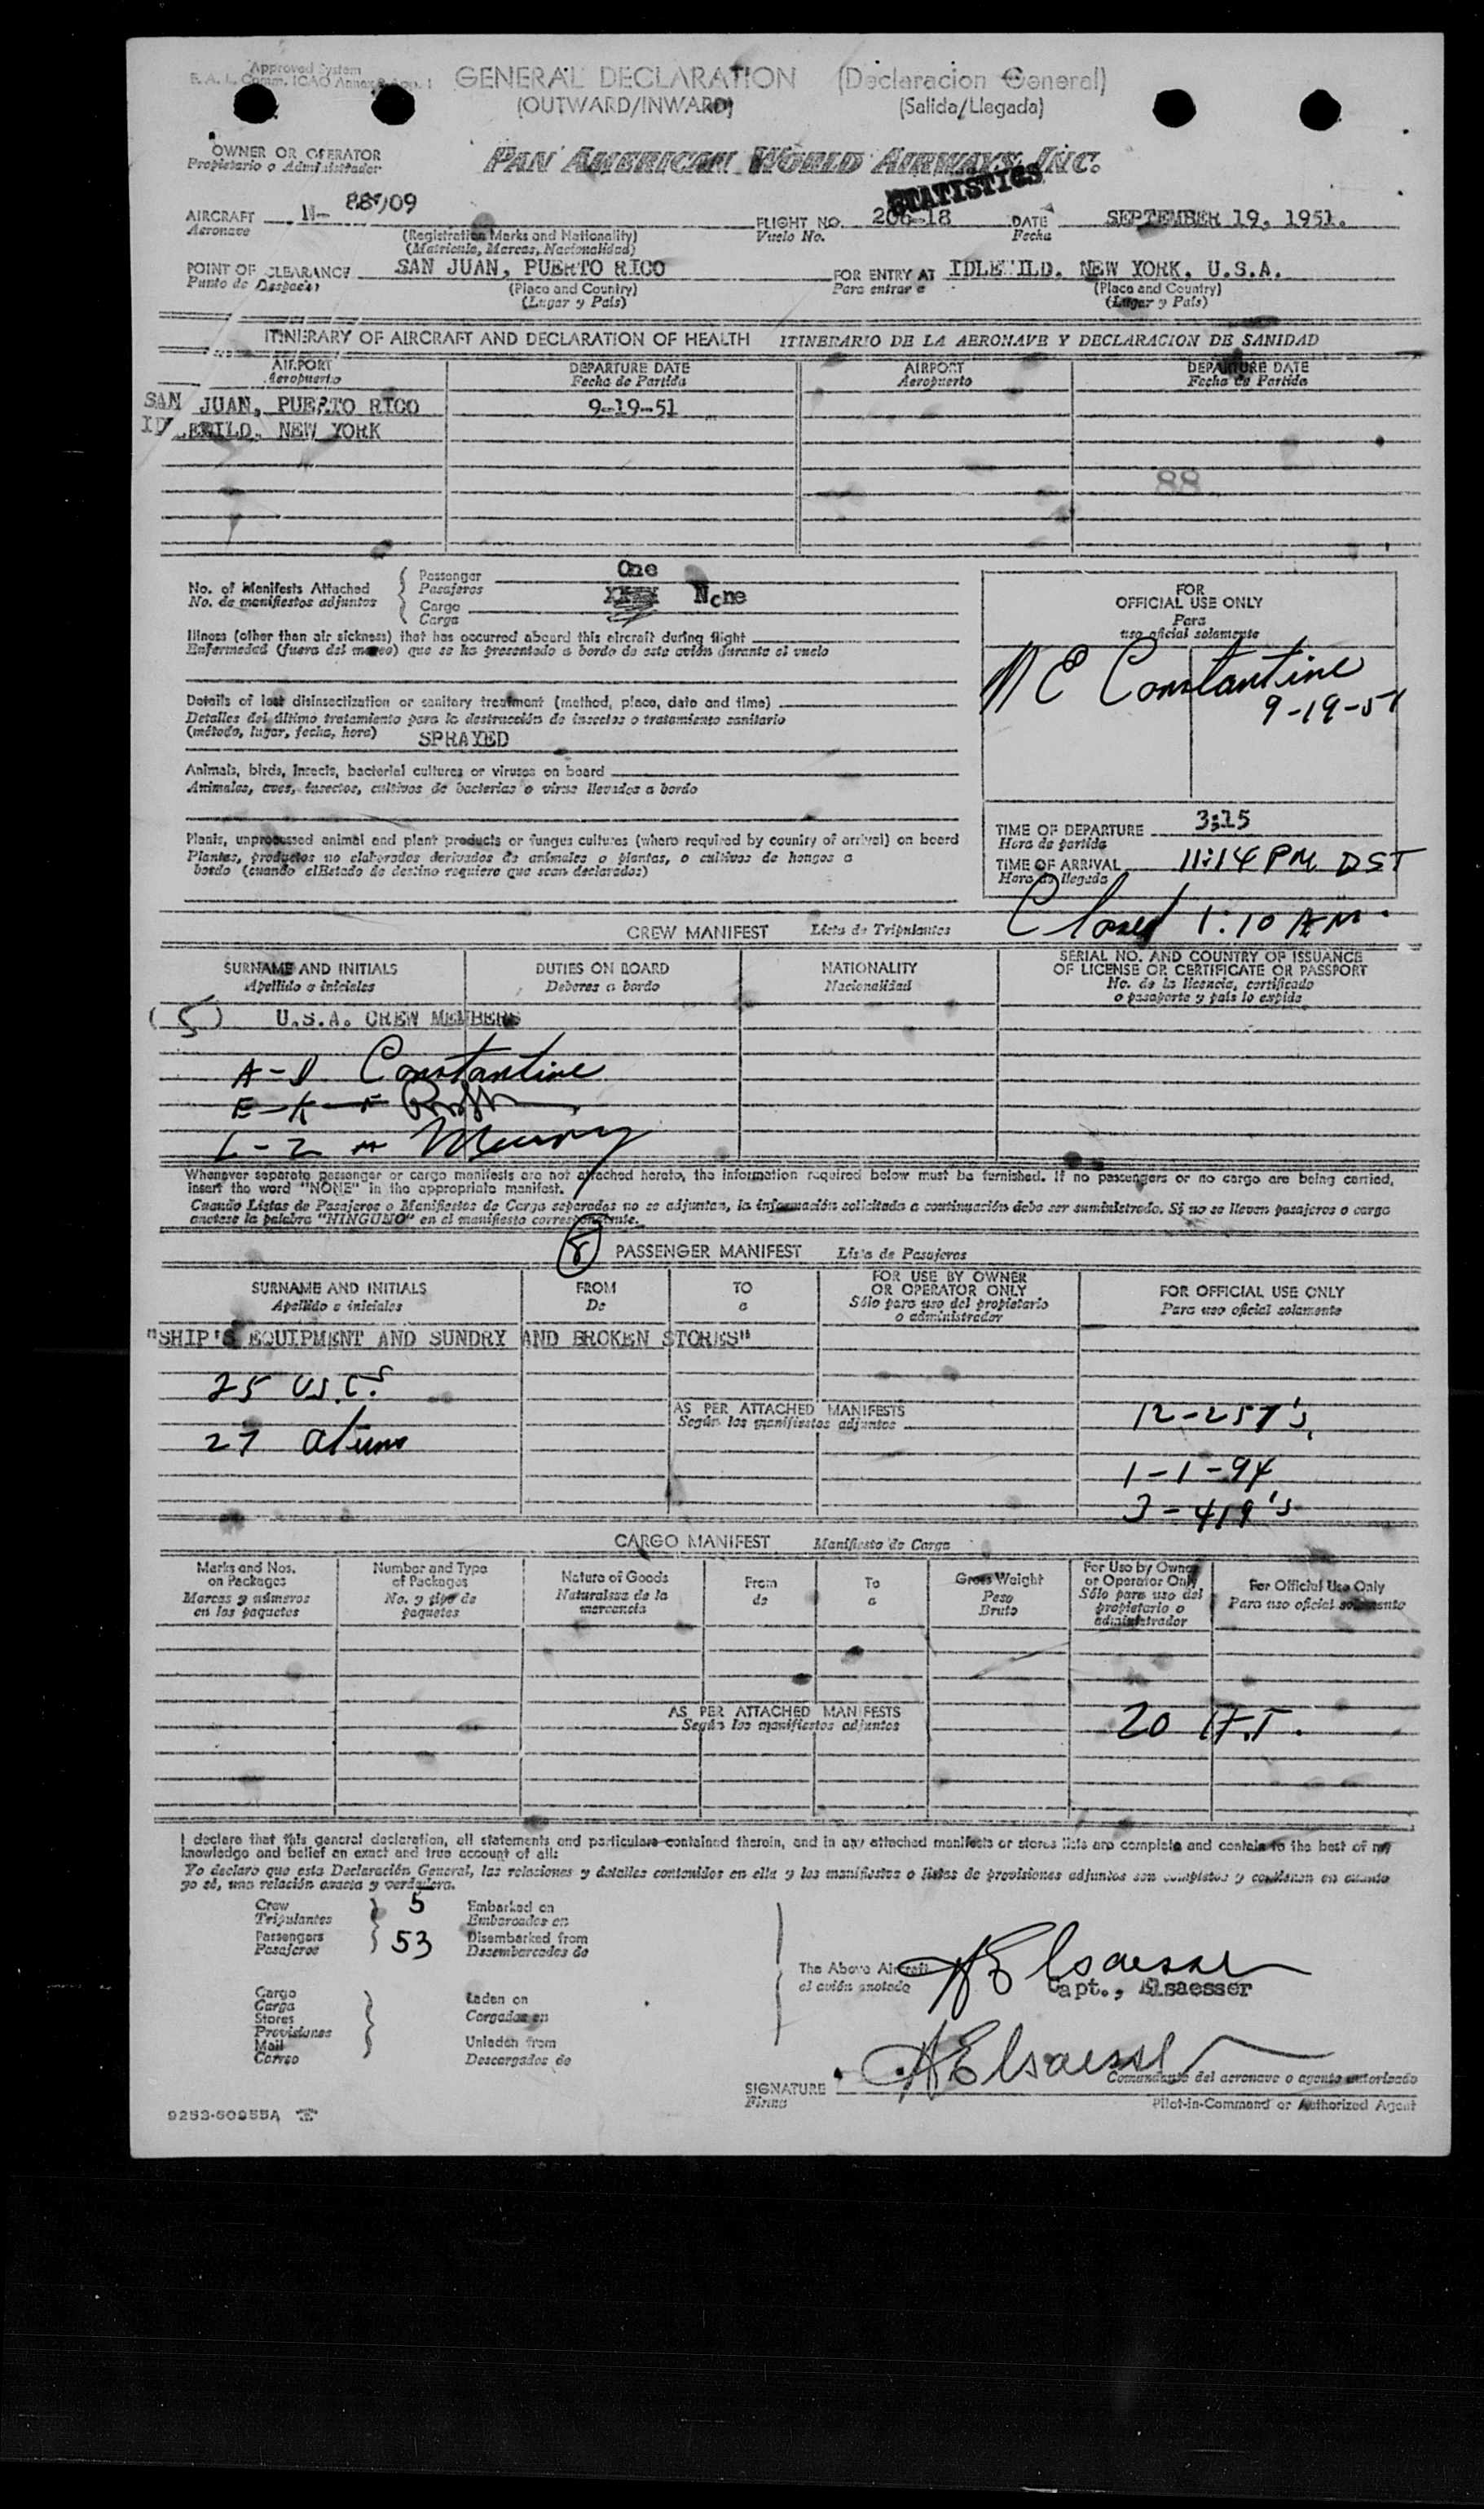 Approved System
F. A. L. Comm. ICAO Annex 9 App. 1
GENERAL DECLARATION (Declaracion General)
(OUTWARD/INWARD) (Salida/Llegada)
OWNER OR OPERATOR
Propietario o Administrador
PAN AMERICAN WORLD AIRWAYS, INC.
STATISTICS
AIRCRAFT N- 88909 FLIGHT NO. 206-18 DATE SEPTEMBER 19, 1951.
Aeronave (Registration Marks and Nationality) Vuelo No. Fecha
(Matricula, Marcas, Nacionalidad)
POINT OF CLEARANCE SAN JUAN, PUERTO RICO FOR ENTRY AT IDLEWILD, NEW YORK, U.S.A.
Punto de Despacho (Place and Country) Para entrar a (Place and Country)
(Lugar y País) (Lugar y País)
ITINERARY OF AIRCRAFT AND DECLARATION OF HEALTH ITINERARIO DE LA AERONAVE Y DECLARACION DE SANIDAD
AIRPORT DEPARTURE DATE AIRPORT DEPARTURE DATE
Aeropuerto Fecha de Partida Aeropuerto Fecha de Partida
SAN JUAN, PUERTO RICO 9-19-51
IDLEWILD, NEW YORK
88
No. of Manifests Attached Passenger One
No. de manifiestos adjuntos Pasajeros
Cargo None
Carga
Illness (other than air sickness) that has occurred aboard this aircraft during flight
Enfermedad (fuera del mareo) que se ha presentado a bordo de este avión durante el vuelo
Details of last disinsectization or sanitary treatment (method, place, date and time)
Detalles del último tratamiento para la destrucción de insectos o tratamiento sanitario
(método, lugar, fecha, hora) SPRAYED
Animals, birds, insects, bacterial cultures or viruses on board
Animales, aves, insectos, cultivos de bacterias o virus llevados a bordo
Plants, unprocessed animal and plant products or fungus cultures (where required by country of arrival) on board
Plantas, productos no elaborados derivados de animales o plantas, o cultivos de hongos a
bordo (cuando elEstado de destino requiere que sean declarados)
FOR
OFFICIAL USE ONLY
Para
uso oficial solamente
N E Constantine
9-19-51
TIME OF DEPARTURE 3:15
Hora de partida
TIME OF ARRIVAL 11:14 PM DST
Hora de llegada
Closed 1:10 AM.
CREW MANIFEST Lista de Tripulantes
SURNAME AND INITIALS DUTIES ON BOARD NATIONALITY SERIAL NO. AND COUNTRY OF ISSUANCE
OF LICENSE OR CERTIFICATE OR PASSPORT
Apellido e iniciales Deberes a bordo Nacionalidad No. de la licencia, certificado
o pasaporte y país lo expide
(5) U.S.A. CREW MEMBERS
A-D Constantine
E-K
L-Z
Whenever separate passenger or cargo manifests are not attached hereto, the information required below must be furnished. If no passengers or no cargo are being carried,
insert the word "NONE" in the appropriate manifest.
Cuando Listas de Pasajeros o Manifiestos de Carga separados no se adjuntan, la información solicitada a continuación debe ser suministrada. Si no se llevan pasajeros o carga
anotese la palabra "NINGUNO" en el manifiesto correspondiente.
PASSENGER MANIFEST Lista de Pasajeros
SURNAME AND INITIALS FROM TO FOR USE BY OWNER
OR OPERATOR ONLY FOR OFFICIAL USE ONLY
Apellido e iniciales De a Sólo para uso del propietario
o administrador Para uso oficial solamente
"SHIP'S EQUIPMENT AND SUNDRY AND BROKEN STORES"
25 U.S.C.S
27
AS PER ATTACHED MANIFESTS
Según los manifiestos adjuntos
12-257's
1-1-94
3-419's
CARGO MANIFEST Manifiesto de Carga
Marks and Nos.
on Packages
Marcas y números
en los paquetes
Number and Type
of Packages
No. y tipo de
paquetes
Nature of Goods
Naturaleza de la
mercancía
From
de
To
a
Gross Weight
Peso
Bruto
For Use by Owner
or Operator Only
Sólo para uso del
propietario o
administrador
For Official Use Only
Para uso oficial solamente
AS PER ATTACHED MANIFESTS
Según los manifiestos adjuntos
20
I declare that this general declaration, all statements and particulars contained therein, and in any attached manifests or stores lists are complete and contain to the best of my
knowledge and belief an exact and true account of all:
Yo declaro que esta Declaración General, las relaciones y detalles contenidos en ella y los manifiestos o listas de provisiones adjuntos son completos y contienen en cuanto
yo sé, una relación exacta y verdadera.
Crew 5 Embarked on
Tripulantes Embarcados en
Passengers 53 Disembarked from
Pasajeros Desembarcados de
The Above Aircraft
el avión anotado
A E Elsaesser
Capt., Elsaesser
Cargo
Carga
Stores Laden on
Provisiones Cargados en
Mail Unladen from
Correo Descargados de
SIGNATURE A E Elsaesser
Firma
Comandante del aeronave o agente autorizado
Pilot-in-Command or Authorized Agent
9253-60955A